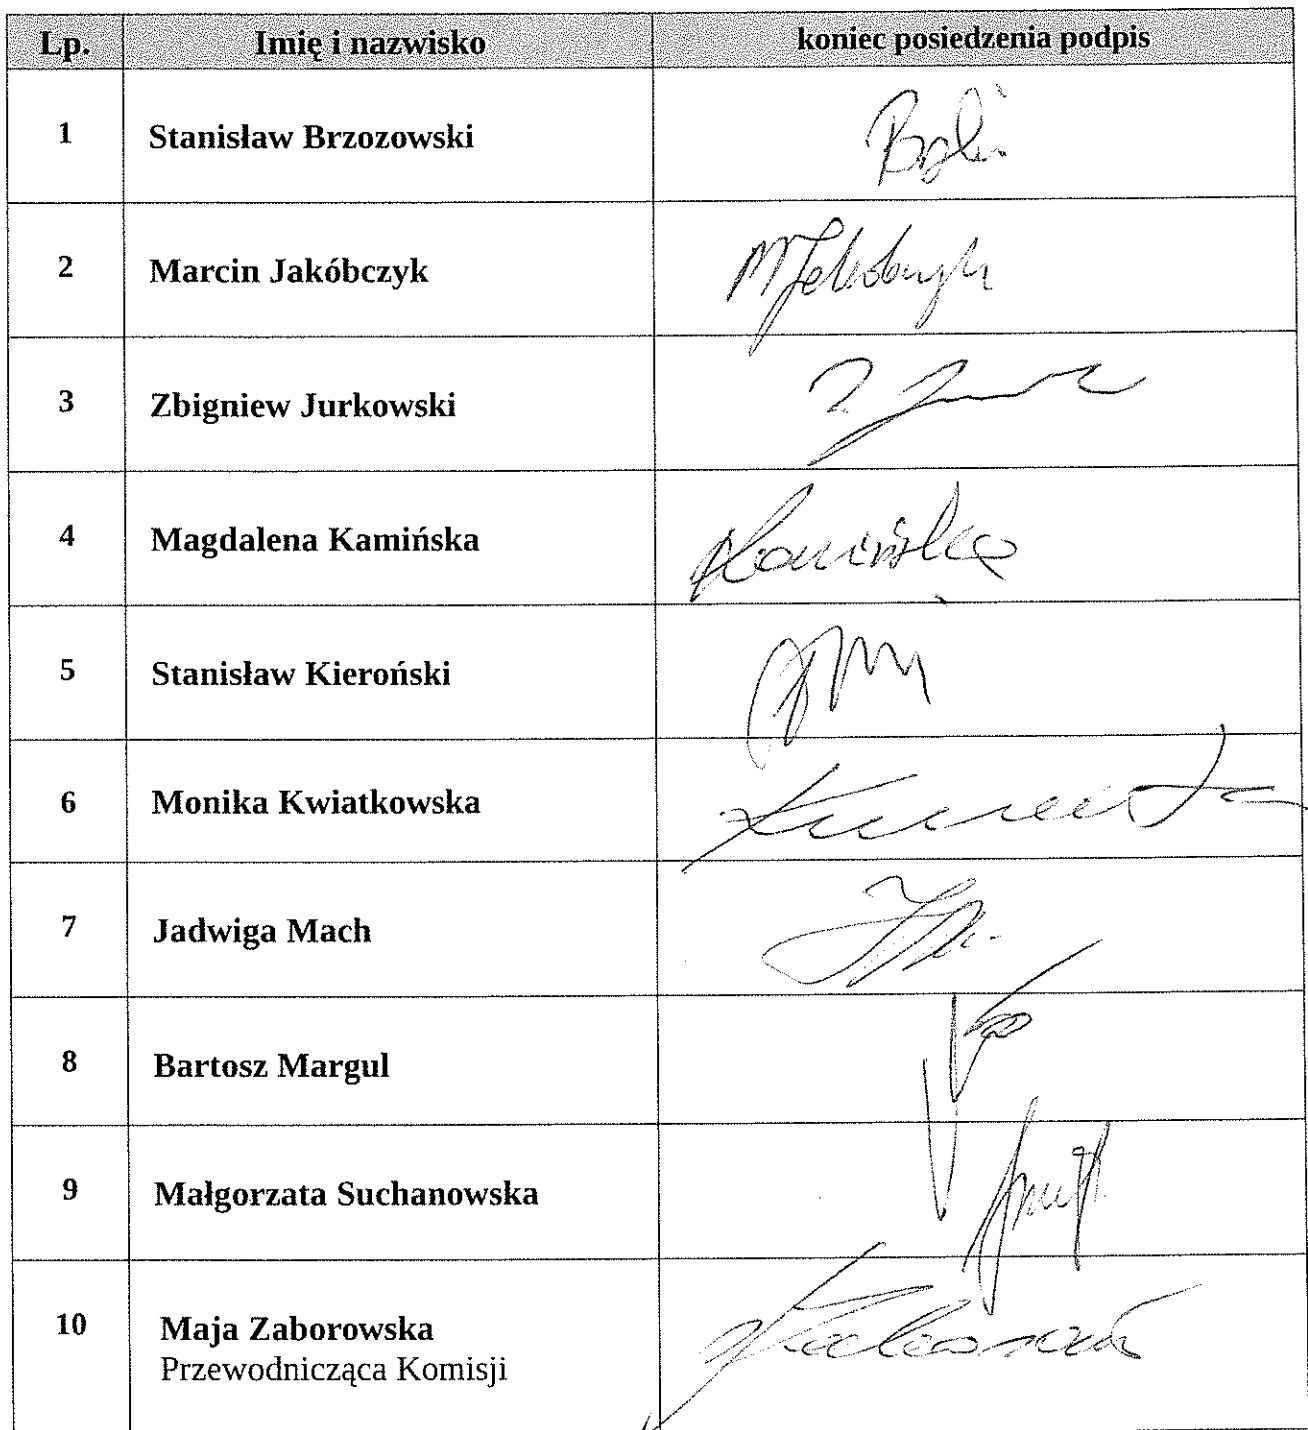 Lp. Imię i nazwisko koniec posiedzenia podpis
1 Stanisław Brzozowski
2 Marcin Jakóbczyk
3 Zbigniew Jurkowski
4 Magdalena Kamińska Kamińska
5 Stanisław Kieroński
6 Monika Kwiatkowska
7 Jadwiga Mach
8 Bartosz Margul
9 Małgorzata Suchanowska
10 Maja Zaborowska
Przewodnicząca Komisji